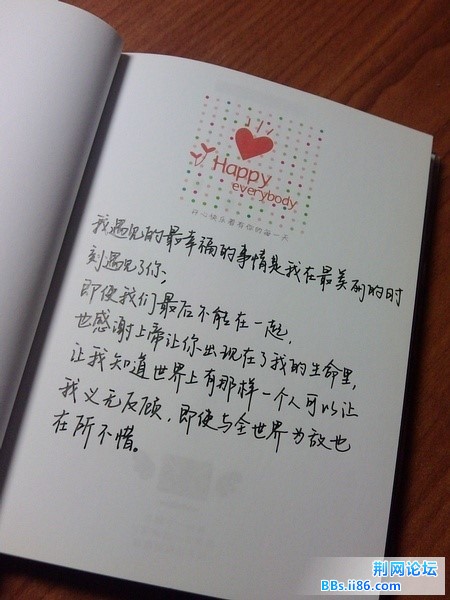 Happy
everybody
开心快乐着看你的每一天
我遇见的最幸福的事情是我在最美丽的时
刻遇见了你,
即使我们最后不能在一起,
也感谢上帝让你出现在了我的生命里,
让我知道世界上有那样一个人可以让
我义无反顾,即使与全世界为敌也
在所不惜。
荆网论坛
BBs.ii86.com